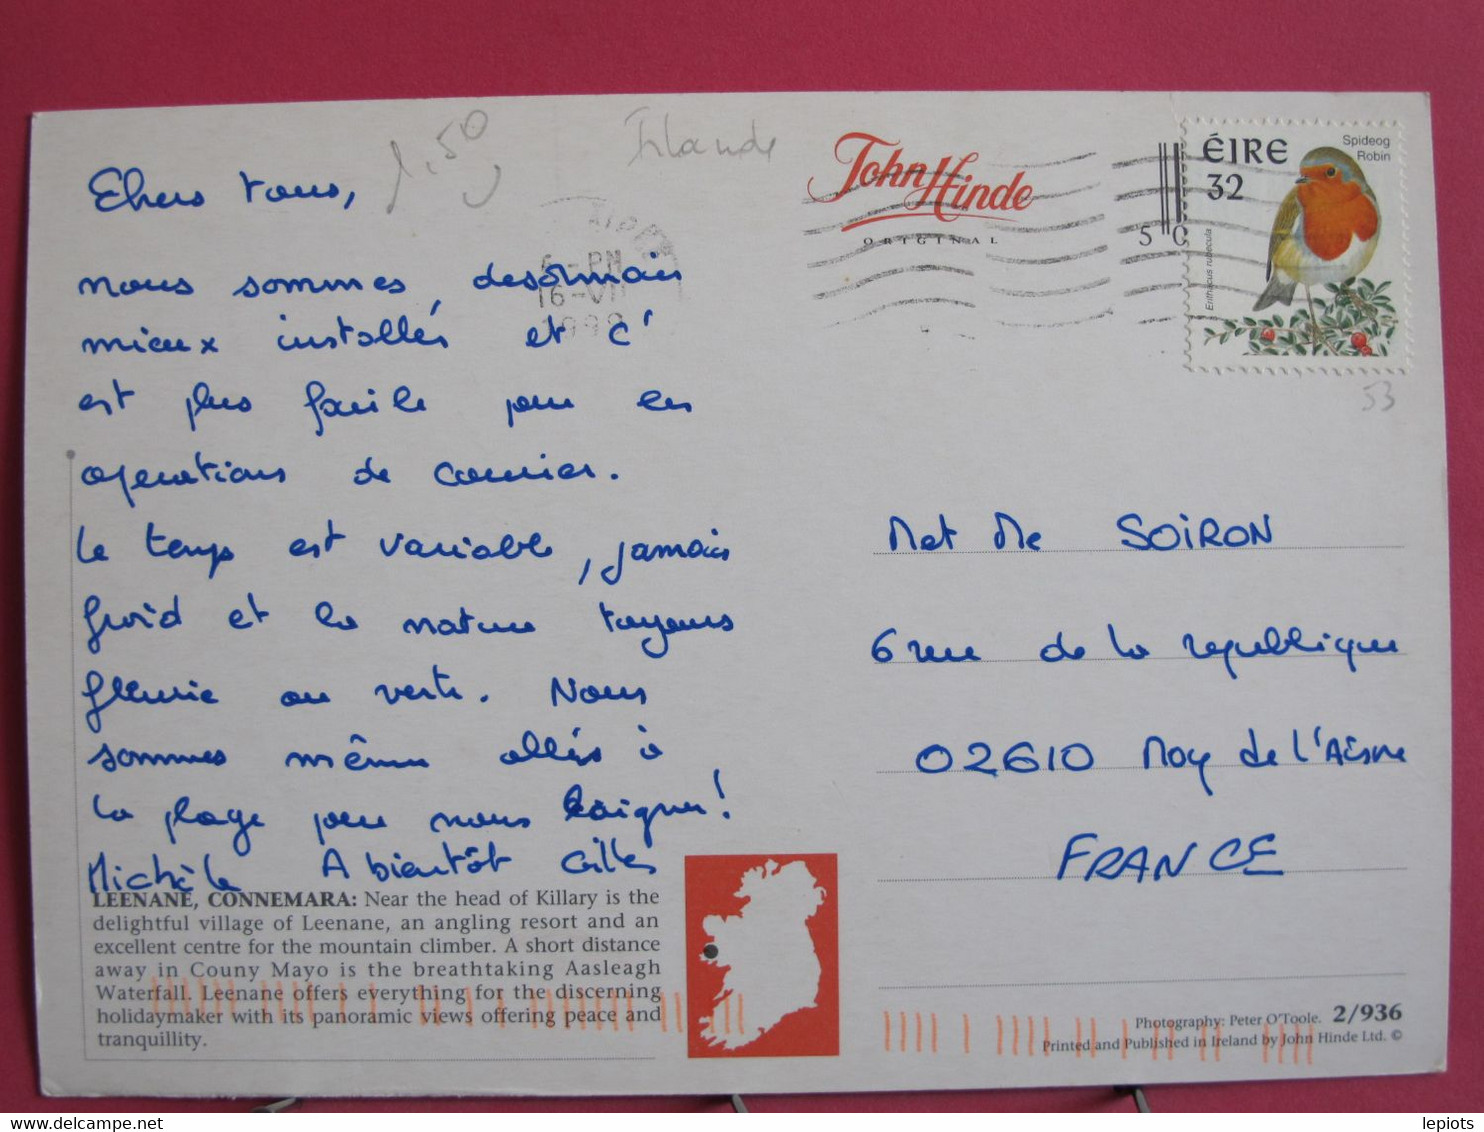 Chers tous,
nous sommes désormais
mieux installés et c'
est plus facile pour les
opérations de courrier.
Le temps est variable, jamais
froid et la nature toujours
fleurie ou verte. Nous
sommes même allés à
la plage pour nous baigner!
Michèle A bientôt Gilles
1.50
Irlande
6-PM
16-VII
John Hinde
ORIGINAL
50
ÉIRE
32
Spideog
Robin
Erithacus rubecula
53
M et Me SOIRON
6 rue de la republique
02610 Moy de l'Aisne
FRANCE
LEENANE, CONNEMARA: Near the head of Killary is the
delightful village of Leenane, an angling resort and an
excellent centre for the mountain climber. A short distance
away in Couny Mayo is the breathtaking Aasleagh
Waterfall. Leenane offers everything for the discerning
holidaymaker with its panoramic views offering peace and
tranquillity.
Photography: Peter O'Toole. 2/936
Printed and Published in Ireland by John Hinde Ltd. ©
delcampe.net
lepiots